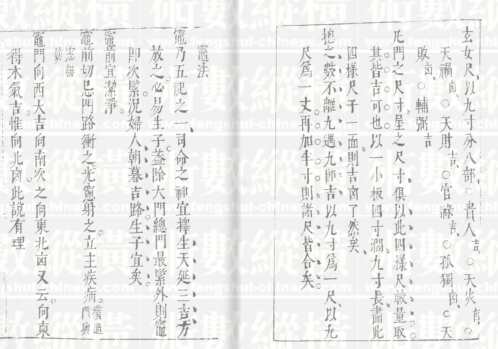 玄女尺、以九寸分八部、貴人吉。○天災凶。○
天禍凶。○天財吉。○官祿吉。○孤獨凶。○天
敗凶。○輔弼吉
凡門之尺寸星之尺寸俱以此四樣尺較量取
其皆吉可也、以一小板四寸濶、九寸長、畵此
四樣尺于一面則吉凶了然矣
地之數不離九遇九卽吉以九寸爲一尺、以九
尺爲一丈、再加半寸則諸尺皆合矣
竈法
竈乃五祀之一司命之神宜擇生天延三吉方
放之必易生子蓋除大門總門最緊外則竈
卽次緊況婦人朝暮吉路生子宜矣
竈前宜潔淨
竈前切忌四路衝之光竈射之立主疾病
竈門向西大吉向南次之向東北凶又云向東
得木氣吉惟向北凶此說有理